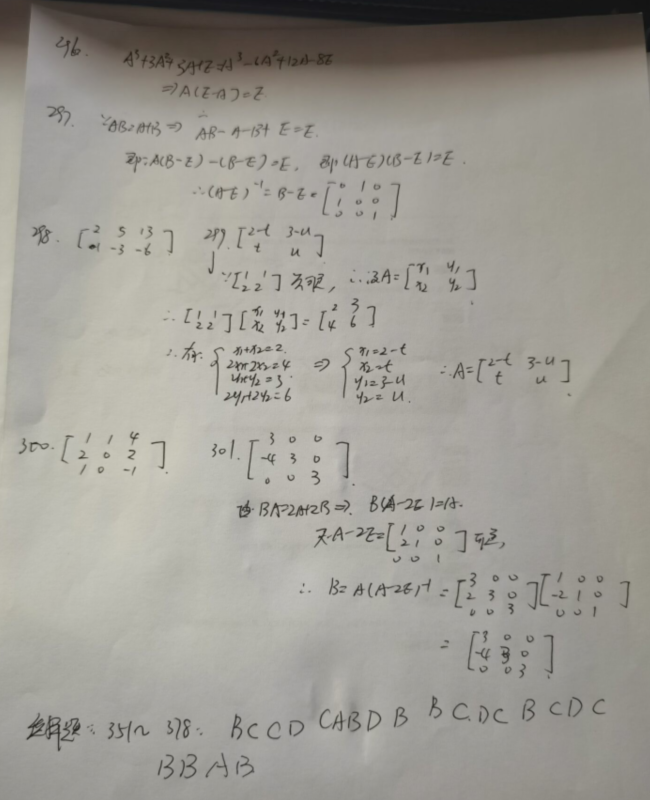 296. A³+3A²+3A+E=A³-6A²+12A-8E
⇒A(E-A)=E
297. ∵AB=A+B⇒ AB-A-B+E=E.
即:A(B-E)-(B-E)=E, 即:(A-E)(B-E)=E.
∴(A-E)⁻¹=B-E=[0 1 0
1 0 0
0 0 1]
298. [2 5 13
-1 -3 -6] 299. [2-t 3-u
t u]
∵[1 1
2 2], ∴设A=[x₁ y₁
x₂ y₂]
∴[1 1
2 2][x₁ y₁
x₂ y₂]=[2 3
4 6]
∴有:{x₁+x₂=2
2x₁+2x₂=4
y₁+y₂=3
2y₁+2y₂=6
⇒{x₁=2-t
x₂=t
y₁=3-u
y₂=u.
∴A=[2-t 3-u
t u].
300. [1 1 4
2 0 2
1 0 -1]. 301. [3 0 0
-4 3 0
0 0 3].
由BA=2A+2B⇒ B(A-2E)=2A.
又A-2E=[1 0 0
2 1 0
0 0 1]可逆,
∴ B=A(A-2E)⁻¹=[3 0 0
2 3 0
0 0 3][1 0 0
-2 1 0
0 0 1]
=[3 0 0
-4 3 0
0 0 3]
选择题: 351~378: BCCD CABDB BC.DC BCDC
BBAB